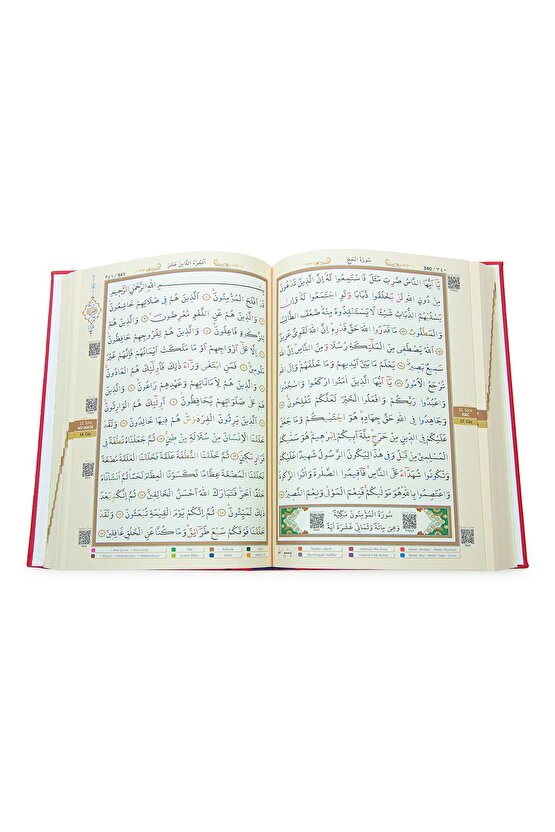 سُورَةُ الْحَجِّ
340 / ٣٤٠
يَٓا اَيُّهَا النَّاسُ ضُرِبَ مَثَلٌ فَاسْتَمِعُوا لَهُ اِنَّ الَّذ۪ينَ تَدْعُونَ
مِنْ دُونِ اللّٰهِ لَنْ يَخْلُقُوا ذُبَابًا وَلَوِ اجْتَمَعُوا لَهُ وَاِنْ
يَسْلُبْهُمُ الذُّبَابُ شَيْـًٔا لَا يَسْتَنْقِذُوهُ مِنْهُ ضَعُفَ الطَّالِبُ
وَالْمَطْلُوبُ مَا قَدَرُوا اللّٰهَ حَقَّ قَدْرِه۪ اِنَّ اللّٰهَ لَقَوِيٌّ عَز۪يزٌ
اَللّٰهُ يَصْطَف۪ي مِنَ الْمَلٰٓئِكَةِ رُسُلًا وَمِنَ النَّاسِ اِنَّ اللّٰهَ
سَم۪يعٌ بَص۪يرٌ يَعْلَمُ مَا بَيْنَ اَيْد۪يهِمْ وَمَا خَلْفَهُمْ وَاِلَى اللّٰهِ
تُرْجَعُ الْاُمُورُ يَٓا اَيُّهَا الَّذ۪ينَ اٰمَنُوا ارْكَعُوا وَاسْجُدُوا
وَاعْبُدُوا رَبَّكُمْ وَافْعَلُوا الْخَيْرَ لَعَلَّكُمْ تُفْلِحُونَ
وَجَاهِدُوا فِي اللّٰهِ حَقَّ جِهَادِه۪ هُوَ اجْتَبٰيكُمْ وَمَا جَعَلَ
عَلَيْكُمْ فِي الدّ۪ينِ مِنْ حَرَجٍ مِلَّةَ اَب۪يكُمْ اِبْرٰه۪يمَ هُوَ سَمّٰيكُمُ
الْمُسْلِم۪ينَ مِنْ قَبْلُ وَف۪ي هٰذَا لِيَكُونَ الرَّسُولُ شَه۪يدًا عَلَيْكُمْ
وَتَكُونُوا شُهَدَٓاءَ عَلَى النَّاسِ فَاَق۪يمُوا الصَّلٰوةَ وَاٰتُوا الزَّكٰوةَ
وَاعْتَصِمُوا بِاللّٰهِ هُوَ مَوْلٰيكُمْ فَنِعْمَ الْمَوْلٰى وَنِعْمَ النَّص۪يرُ
سُورَةُ الْمُؤْمِنُونَ مَكِّيَّةٌ
وَهِيَ مِائَةٌ وَثَمَانِي عَشْرَةَ اٰيَةً
22. Sûre
HAC
17. Cüz
اَلْجُزْءُ الثَّامِنَ عَشَرَ
341 / ٣٤١
بِسْمِ اللّٰهِ الرَّحْمٰنِ الرَّح۪يمِ
قَدْ اَفْلَحَ الْمُؤْمِنُونَ اَلَّذ۪ينَ هُمْ ف۪ي صَلَاتِهِمْ خَاشِعُونَ
وَالَّذ۪ينَ هُمْ عَنِ اللَّغْوِ مُعْرِضُونَ وَالَّذ۪ينَ هُمْ
لِلزَّكٰوةِ فَاعِلُونَ وَالَّذ۪ينَ هُمْ لِفُرُوجِهِمْ حَافِظُونَ
اِلَّا عَلٰٓى اَزْوَاجِهِمْ اَوْ مَا مَلَكَتْ اَيْمَانُهُمْ فَاِنَّهُمْ غَيْرُ
مَلُوم۪ينَ فَمَنِ ابْتَغٰى وَرَٓاءَ ذٰلِكَ فَاُو۬لٰٓئِكَ هُمُ
الْعَادُونَ وَالَّذ۪ينَ هُمْ لِاَمَانَاتِهِمْ وَعَهْدِهِمْ رَاعُونَ وَالَّذ۪ينَ
هُمْ عَلٰى صَلَوَاتِهِمْ يُحَافِظُونَ اُو۬لٰٓئِكَ هُمُ الْوَارِثُونَ
اَلَّذ۪ينَ يَرِثُونَ الْفِرْدَوْسَ هُمْ ف۪يهَا خَالِدُونَ وَلَقَدْ
خَلَقْنَا الْاِنْسَانَ مِنْ سُلَالَةٍ مِنْ ط۪ينٍ ثُمَّ جَعَلْنَاهُ نُطْفَةً ف۪ي
قَرَارٍ مَك۪ينٍ ثُمَّ خَلَقْنَا النُّطْفَةَ عَلَقَةً فَخَلَقْنَا الْعَلَقَةَ مُضْغَةً
فَخَلَقْنَا الْمُضْغَةَ عِظَامًا فَكَسَوْنَا الْعِظَامَ لَحْمًا ثُمَّ اَنْشَأْنَاهُ
خَلْقًا اٰخَرَ فَتَبَارَكَ اللّٰهُ اَحْسَنُ الْخَالِق۪ينَ ثُمَّ اِنَّكُمْ بَعْدَ
ذٰلِكَ لَمَيِّتُونَ ثُمَّ اِنَّكُمْ يَوْمَ الْقِيٰمَةِ تُبْعَثُونَ وَلَقَدْ
خَلَقْنَا فَوْقَكُمْ سَبْعَ طَرَٓائِقَ وَمَا كُنَّا عَنِ الْخَلْقِ غَافِل۪ينَ
23. Sûre
MÜ'MİNÛN
18. Cüz